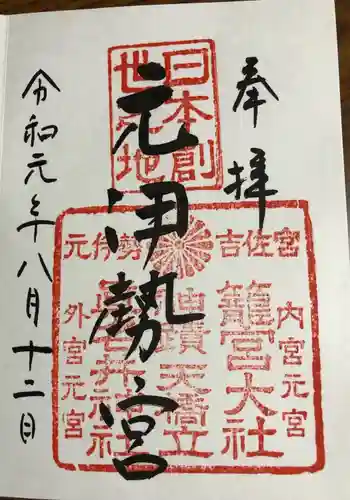 奉拝
日本創
世之地
元伊勢宮
吉佐宮
元伊勢
内宮元宮
籠宮大社
天橋立
眞名井神社
外宮元宮
令和元年八月十二日